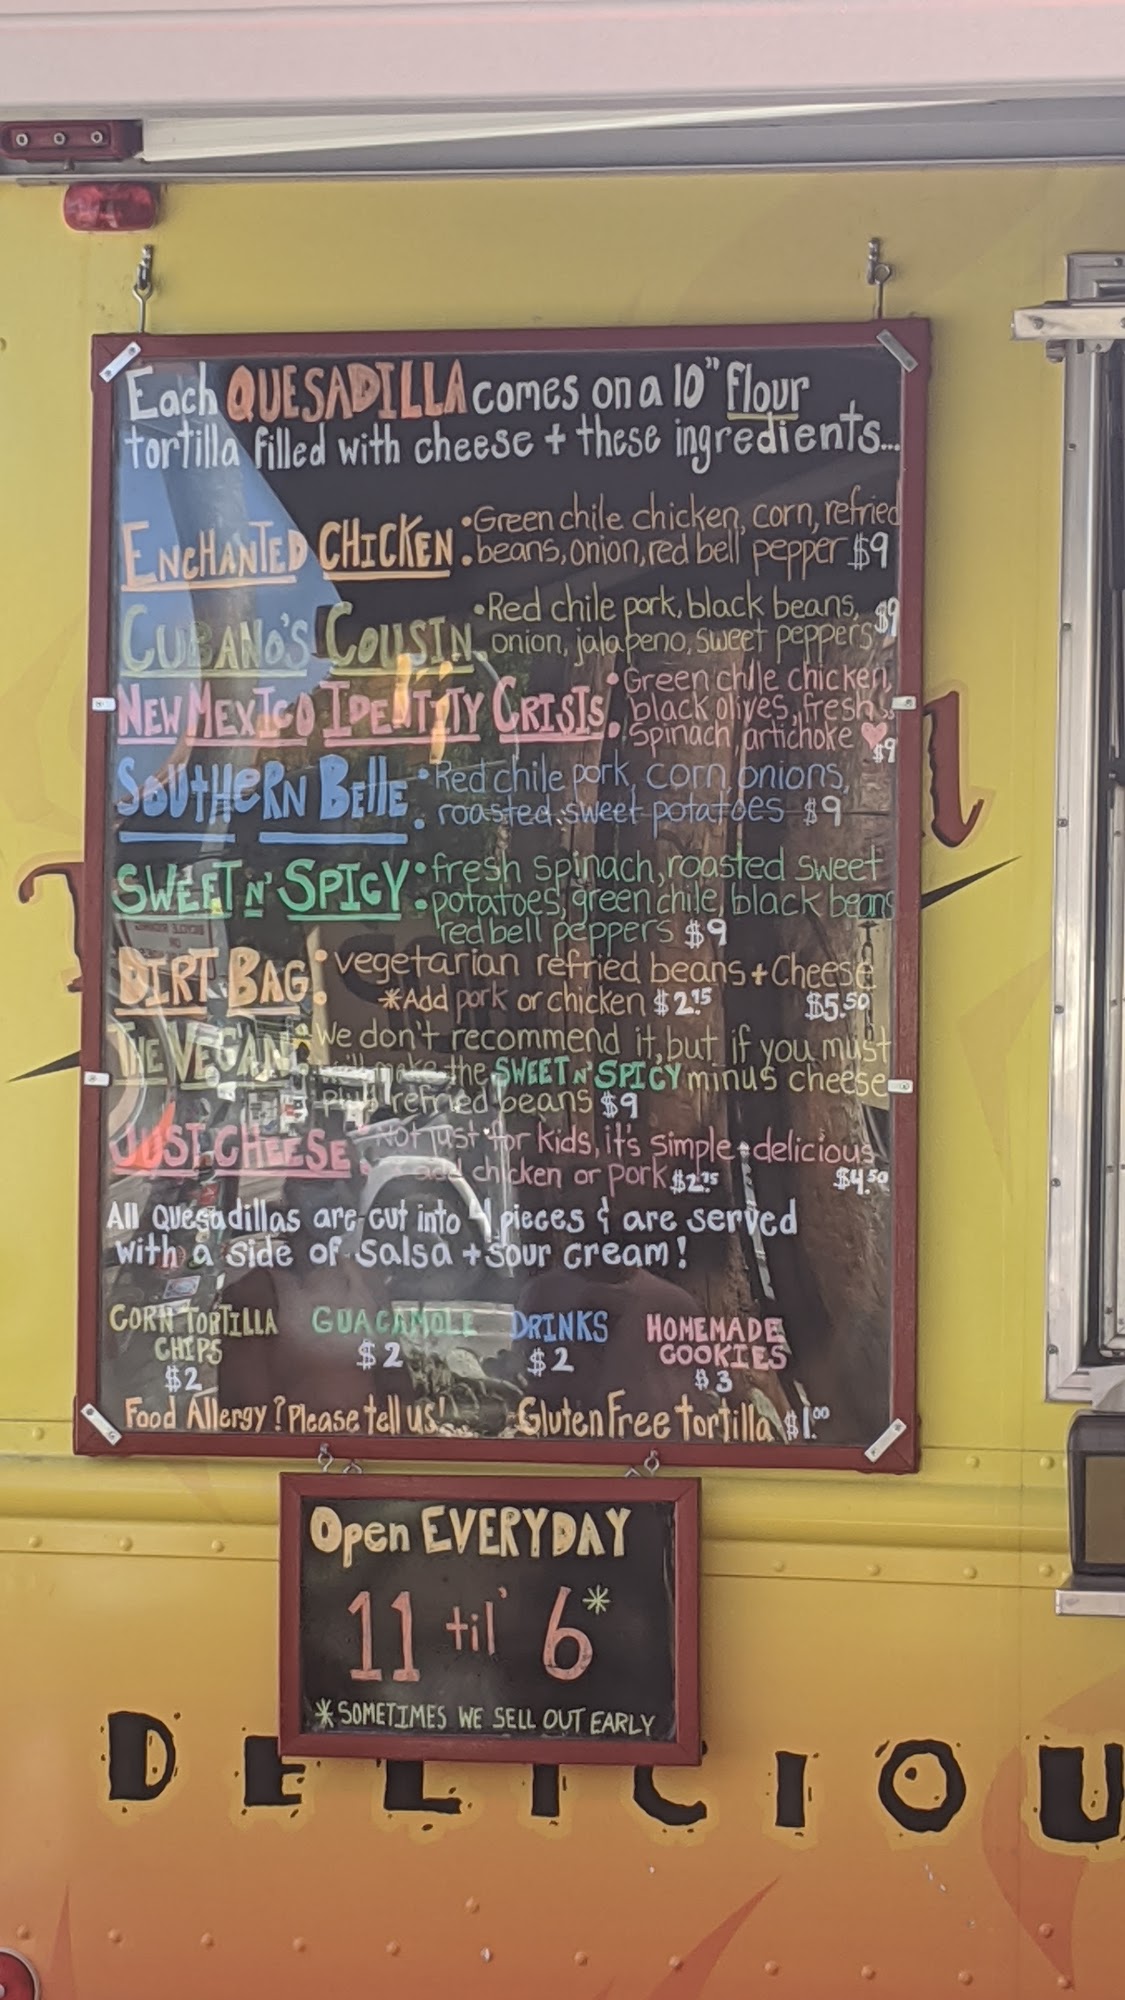 Each QUESADILLA comes on a 10" flour
tortilla filled with cheese + these ingredients...
ENCHANTED CHICKEN: Green chile chicken, corn, refried
beans, onion, red bell pepper $9
CUBANO'S COUSIN: Red chile pork, black beans, $9
onion, jalapeno, sweet peppers
NEW MEXICO IDENTITY CRISIS: Green chile chicken,
black olives, fresh
spinach, artichoke ♥ $9
SOUTHERN BELLE: Red chile pork, corn, onions,
roasted sweet potatoes $9
SWEET N' SPICY: fresh spinach, roasted sweet
potatoes, green chile, black beans
red bell peppers $9
DIRT BAG: vegetarian refried beans + Cheese
*Add pork or chicken $2.75 $5.50
THE VEGAN: We don't recommend it, but if you must
make the SWEET N' SPICY minus cheese
plus refried beans $9
JUST CHEESE: Not just for kids, it's simple + delicious
add chicken or pork $2.75 $4.50
All Quesadillas are cut into 4 pieces & are served
with a side of salsa + sour cream!
CORN TORTILLA
CHIPS
$2
GUACAMOLE
$2
DRINKS
$2
HOMEMADE
COOKIES
$3
Food Allergy? Please tell us! Gluten Free tortilla $1.00
Open EVERYDAY
11 til' 6*
*SOMETIMES WE SELL OUT EARLY
DELICIOU